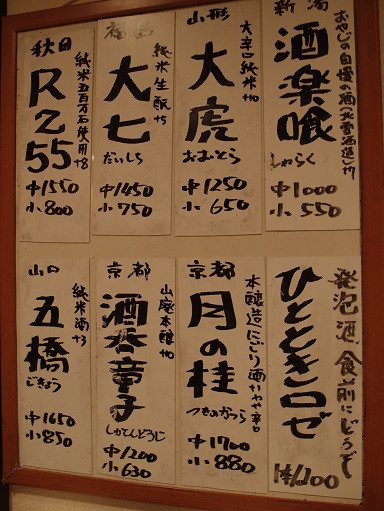 新潟
おやじの自慢の酒(北雪酒造)+7
酒楽喰
しゅらく
中1000
小 550
山形
大辛口純米+10
大虎
おおとら
中1250
小 650
福島
純米生酛+5
大七
だいしち
中1450
小 750
秋田
純米五百万石使用+8
R255
中1550
小 800
発泡酒 食前にどうぞ
ひとときロゼ
1本1200
京都
本醸造にごり酒 やや辛口
月の桂
つきのかつら
中1700
小 880
京都
山廃本醸+10
酒呑童子
しゅてんどうじ
中1200
小 630
山口
純米酒+3
五橋
ごきょう
中1650
小 850